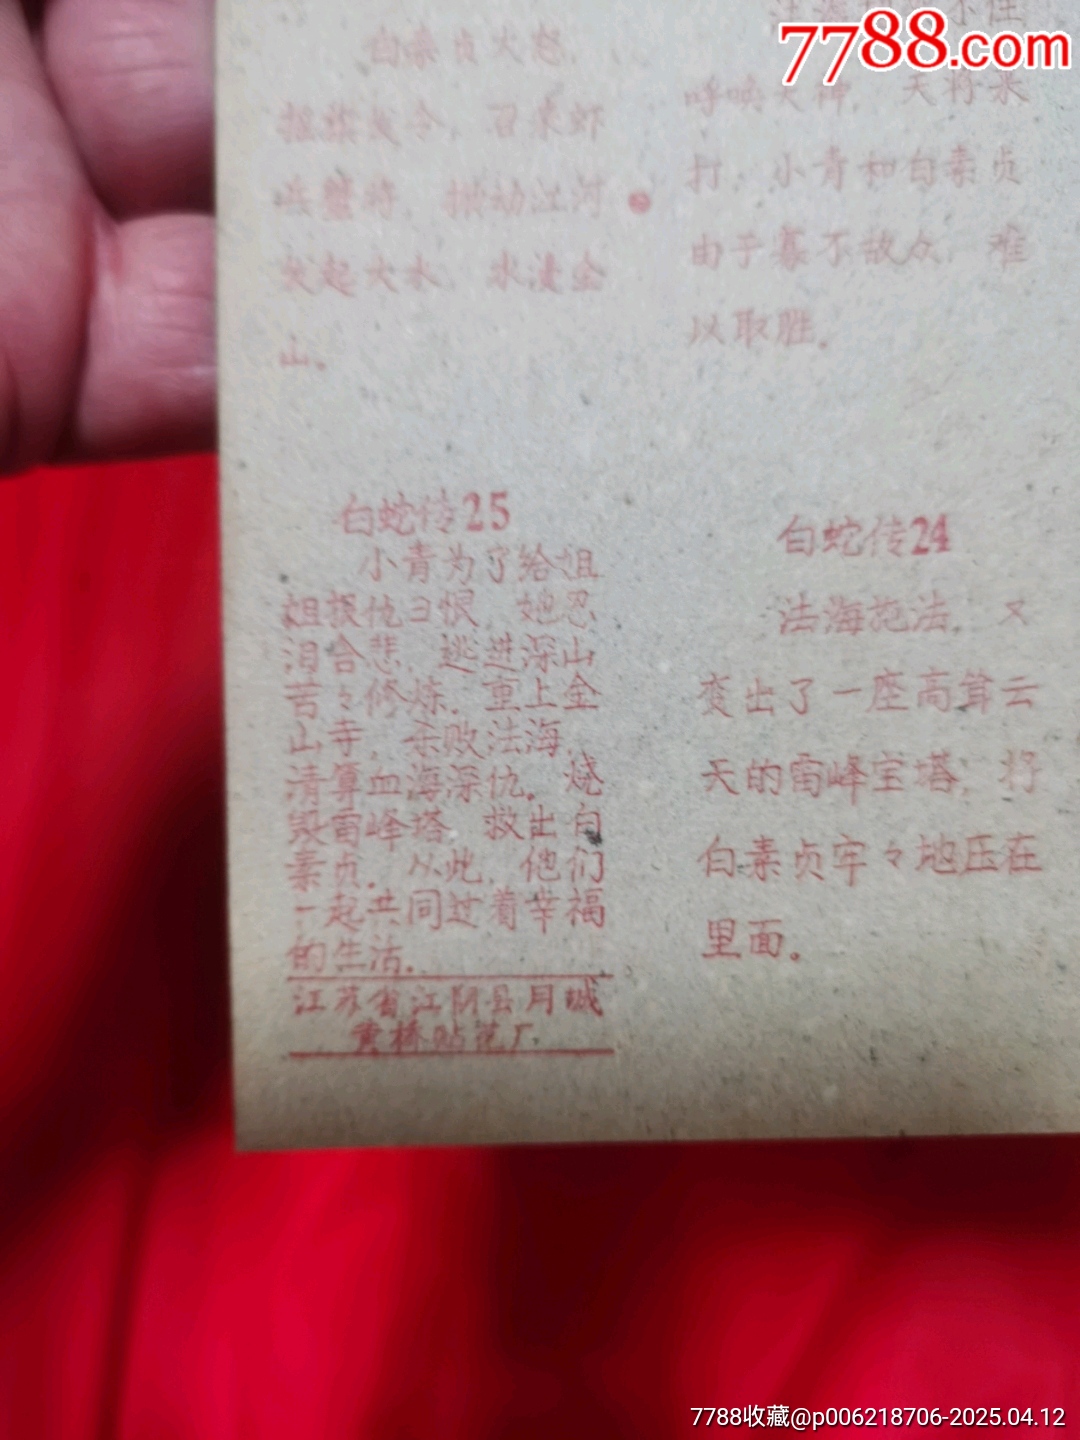 7788.com
白素贞大怒,
摇旗发令,召来虾
兵蟹将,掀动江河
发起大水,水漫金
山。
呼唤天神,天将来
打,小青和白素贞
由于寡不敌众,难
以取胜。
白蛇传25
小青为了给姐
姐报仇彐恨,她忍
泪含悲,逃进深山
苦々修炼,重上金
山寺,杀败法海,
清算血海深仇,烧
毁雷峰塔,救出白
素贞。从此,他们
一起共同过着幸福
的生活。
江苏省江阴县月城
黄桥贴花厂
白蛇传24
法海施法,又
变出了一座高耸云
天的雷峰宝塔,将
白素贞牢々地压在
里面。
7788收藏@p006218706-2025.04.12